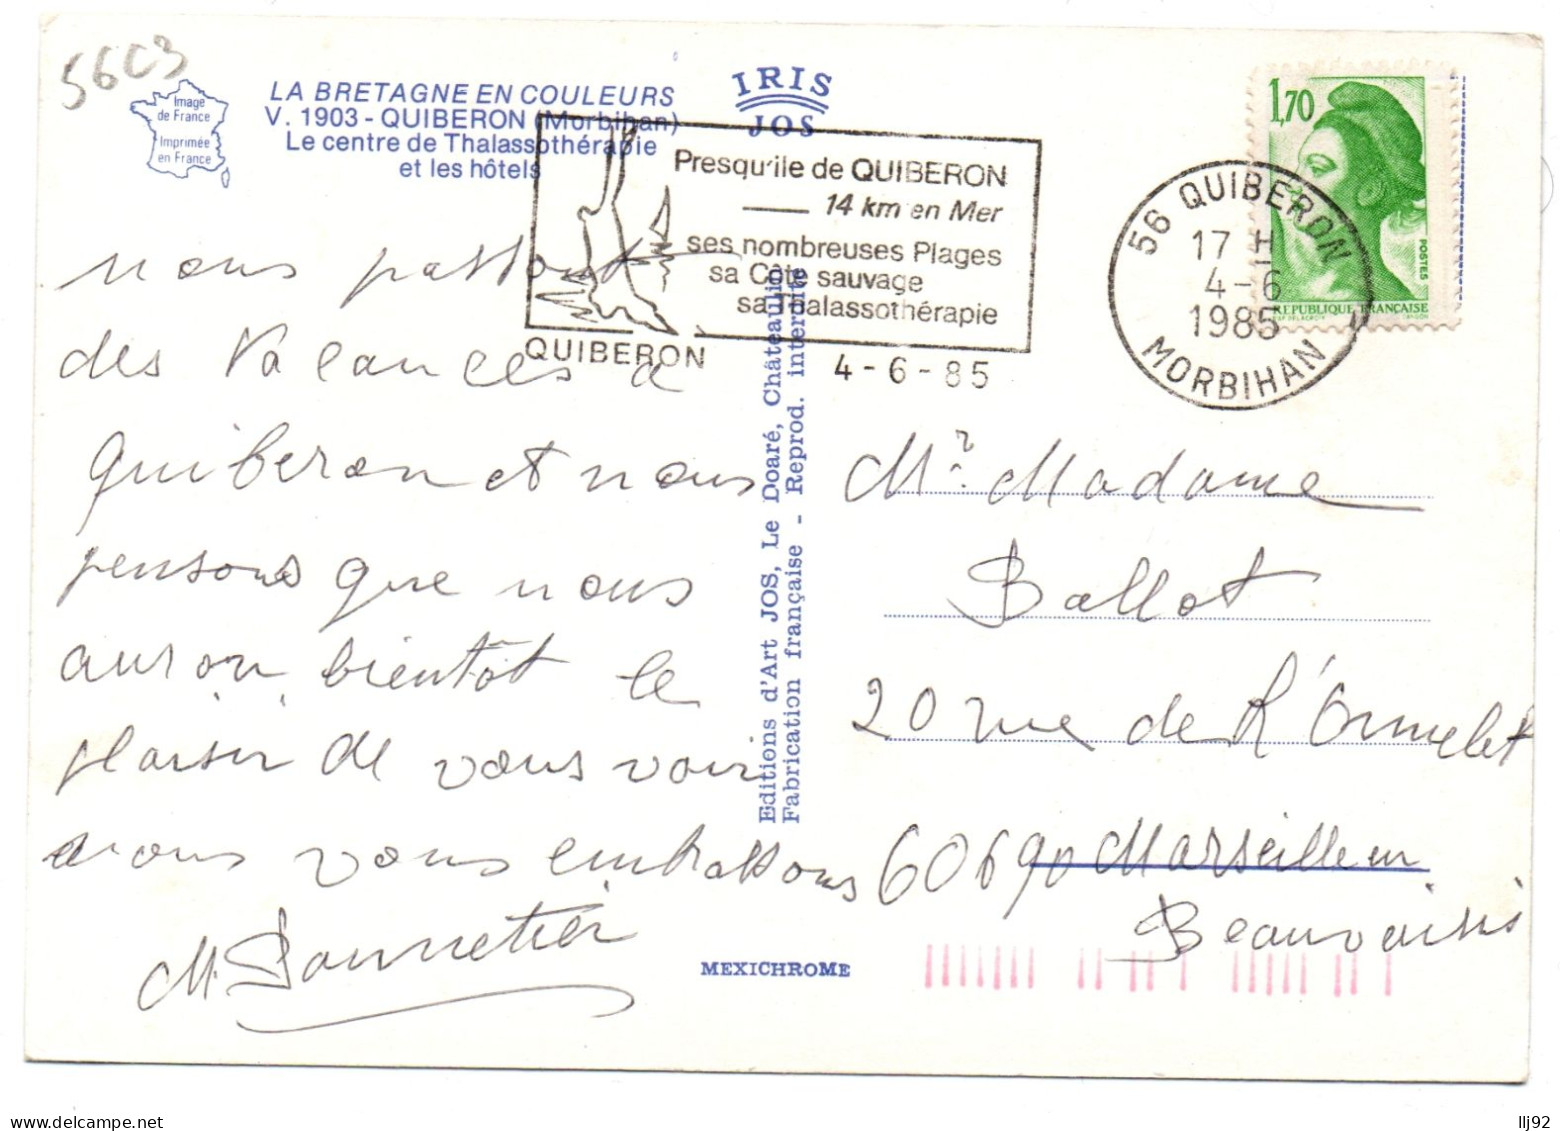 56C3
Image
de France
Imprimée
en France
LA BRETAGNE EN COULEURS
V. 1903 - QUIBERON (Morbihan)
Le centre de Thalassothérapie
et les hôtels
IRIS
JOS
Presqu'ile de QUIBERON
14 km en Mer
ses nombreuses Plages
sa Côte sauvage
sa Thalassothérapie
QUIBERON
4-6-85
56 QUIBERON
17 H
4-6
1985
MORBIHAN
1,70
POSTES
REPUBLIQUE FRANÇAISE
nous passons
des Vacances à
quiberon et nous
pensons que nous
auron bientôt le
plaisir de vous voir
nous vous embrassons
M. Bonnetier
Editions d'Art JOS, Le Doaré, Châteaulin
Fabrication française - Reprod. interdite
MEXICHROME
Mr Madame
Ballot
20 rue de l'Ormelet
60690 Marseille en
Beauvaisis
llj92
www.delcampe.net